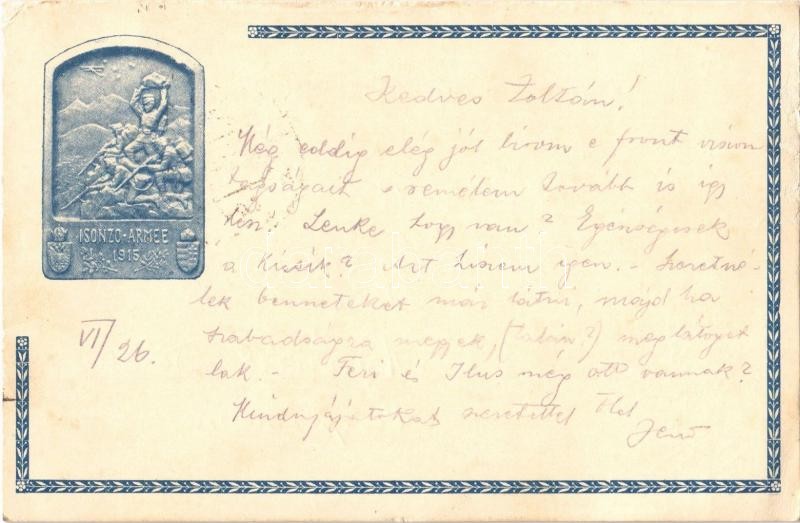 Kedves Zoltán!
Még eddig elég jól bírom e front viszon
tagságait s remélem tovább is így
lesz. Lenke hogy van? Egészségesek
a kicsik? Azt hiszem igen. - Szeretné-
lek benneteket már látni, majd ha
szabadságra megyek, (talán?) meglátogat
lak. - Feri és Ilus még ott vannak?
Mindnyájatokat szeretettel ölel
Jenő
VI/26.
ISONZO-ARMEE
1915